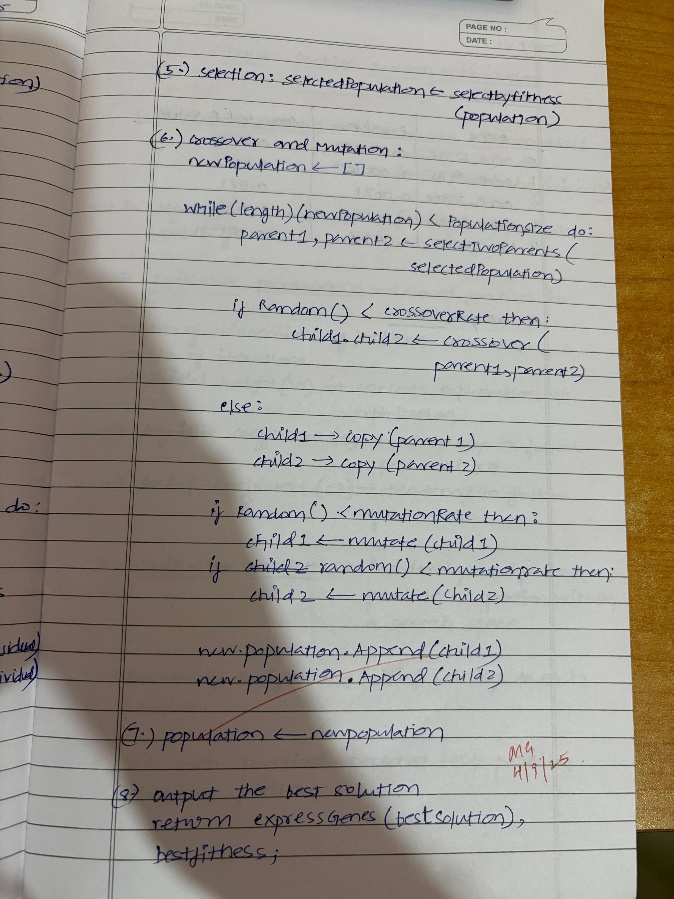 PAGE NO :
DATE :
(5.) selection: selectedPopulation ← selectbyfitness
(population)
(6.) crossover and Mutation :
newPopulation ← []
while (length) (newPopulation) < Populationsize do:
parent1, parent2 ← selectTwoParents (
selectedPopulation)
if Random() < crossoverRate then:
child1.child2 ← crossover (
parent1, parent2)
else:
child1 → copy (parent 1)
child2 → copy (parent 2)
do:
if Random() < mutationRate then:
child1 ← mutate (child1)
if child2 random() < mutationprate then;
child2 ← mutate (child2)
new.population.Append (child1)
new.population.Append (child2)
(7.) population ← newpopulation
4/9/25
(8) output the best solution
return expressGenes (bestsolution),
bestfithess;